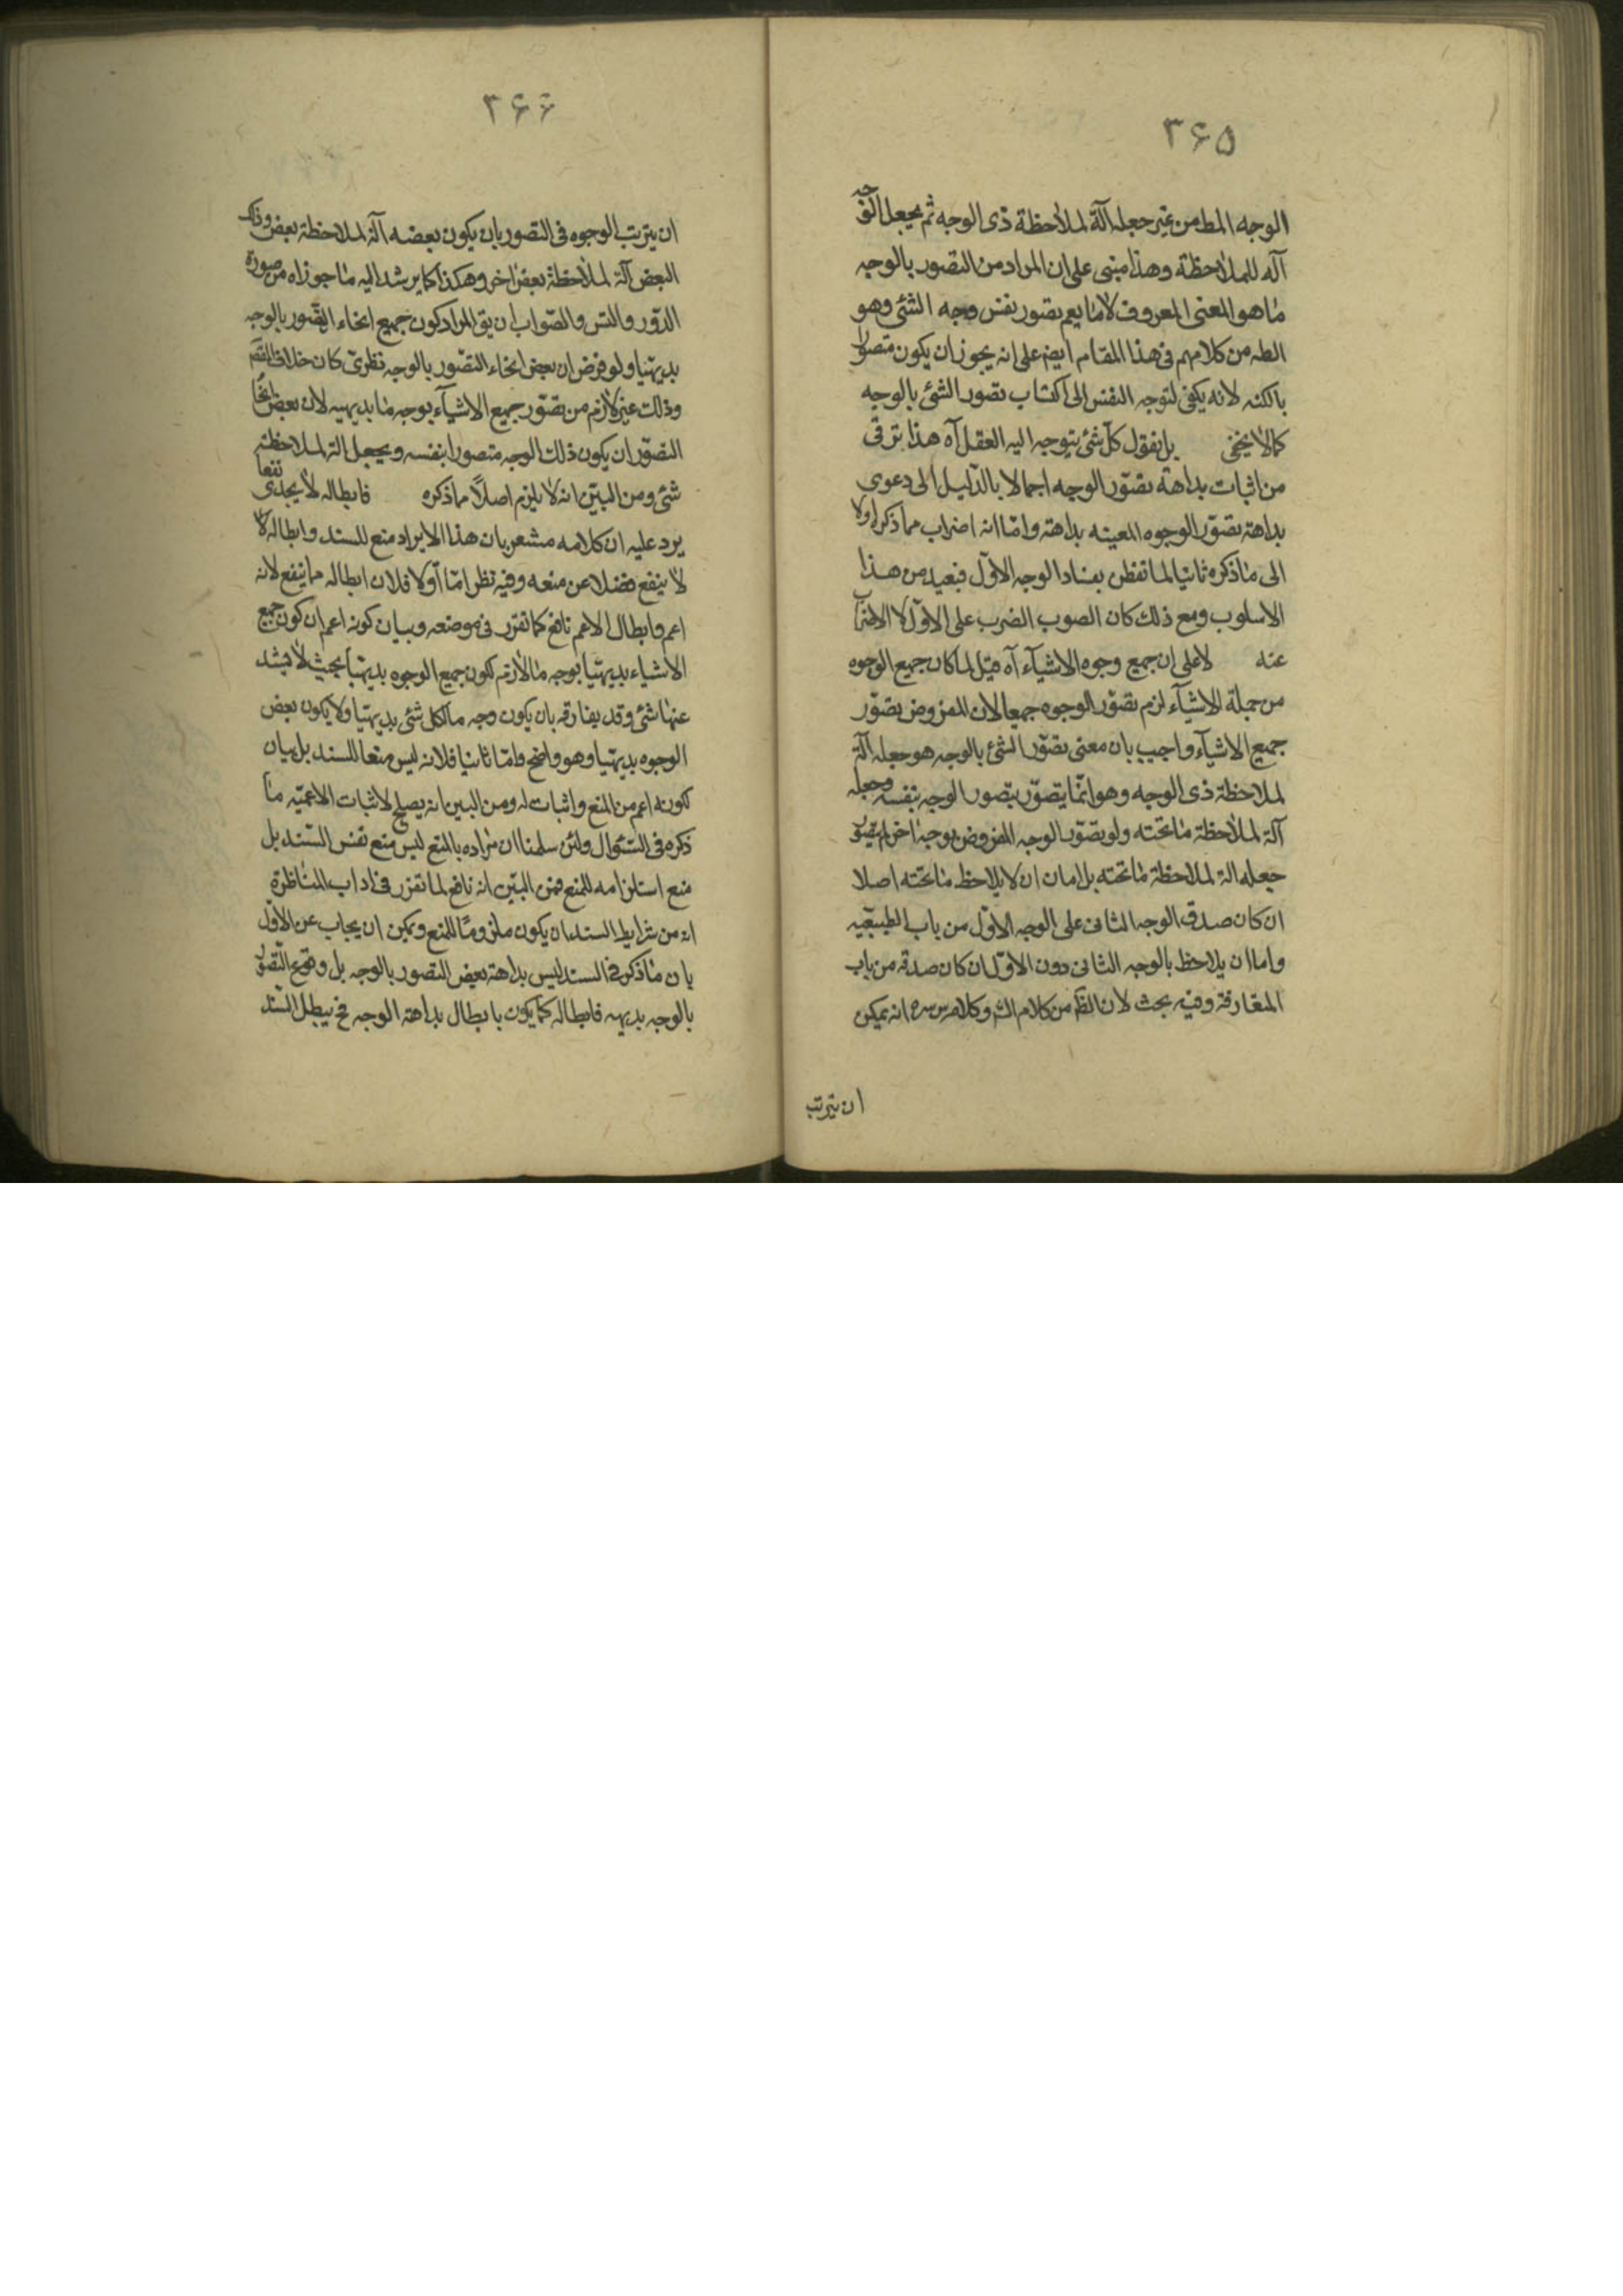 ۳۶۵
الوجه المط من غير جعله آلة لملاحظة ذى الوجه ثم يجعل الوجه
آله للملاحظة وهذا مبنى على ان المراد من التصور بالوجه
ما هو المعنى المعروف لا ما يعم تصور نفس وجه الشئ وهو
الظه من كلامهم فى هذا المقام ايض على انه يجوز ان يكون متصورا
بالكنه لانه يكفى لتوجه النفس الى اكتساب تصور الشئ بالوجه
كما لا يخفى بل نقول كل شئ يتوجه اليه العقل آه هذا ترقى
من اثبات بداهة تصور الوجه اجمالا بالدليل الى دعوى
بداهة تصور الوجوه المعينه بداهة واما انه اضراب مما ذكر اولا
الى ما ذكره ثانيا لما تفطن بفساد الوجه الاول فبعيد من هذا
الاسلوب ومع ذلك كان الصوب الضرب على الاول لا الاضراب
عنه لا على ان جميع وجوه الاشياء آه قيل لما كان جميع الوجوه
من جملة الاشياء لزم تصور الوجوه جميعا لان المفروض تصور
جميع الاشياء واجيب بان معنى تصور الشئ بالوجه هو جعله آلة
لملاحظة ذى الوجه وهو انما يتصور بتصور الوجه بنفسه وجعله
آلة لملاحظة ما تحته ولو تصور الوجه المفروض بوجه اخر لم يتصور
جعله الة لملاحظة ما تحته بل اما ان لا يلاحظ ما تحته اصلا
ان كان صدق الوجه الثانى على الوجه الاول من باب الطبيعيه
واما ان يلاحظ بالوجه الثانى دون الاول ان كان صدقه من باب
المتعارفة وفيه بحث لان الظ من كلام الش وكلامه س سره انه يمكن
ان يترتب
۳۶۶
ان يترتب الوجوه فى التصور بان يكون بعضه آلة لملاحظة بعض وذلك
البعض آلة لملاحظة بعض اخر وهكذا كما يرشد اليه ما جوزاه من صورة
الدور والتس والصواب ان يق المراد كون جميع انحاء التصور بالوجه
بديهيا ولو فرض ان بعض انحاء التصور بالوجه نظرى كان خلاف المقصم
وذلك غير لازم من تصور جميع الاشياء بوجه ما بديهيه لان بعض انحاء
التصور ان يكون ذلك الوجه متصورا بنفسه ويجعل الة لملاحظة
شئ ومن البين انه لا يلزم اصلا مما ذكره فابطاله لا يجدى نفعا
يرد عليه ان كلامه مشعر بان هذا الايراد منع للسند وابطاله لا
لا ينفع فضلا عن منعه وفيه نظر اما اولا فلان ابطاله مما ينفع لانه
اعم وابطال الاعم نافع كما تقرر فى موضعه وبيان كونه اعم ان كون جميع
الاشياء بديهيا بوجه ما لازم لكون جميع الوجوه بديهيا بحيث لا يشذ
عنها شئ وقد يفارقه بان يكون وجه ما لكل شئ بديهيا ولا يكون بعض
الوجوه بديهيا وهو واضح واما ثانيا فلانه ليس منعا للسند بل بيان
لكونه اعم من المنع واثبات له ومن البين انه يصلح لاثبات الاعميه ما
ذكره فى السئوال ولئن سلمنا ان مراده بالمنع ليس منع نفس السند بل
منع استلزامه للمنع فمن البين انه نافع لما تقرر فى اداب المناظرة
انه من شرايط السند ان يكون ملزوما للمنع ويمكن ان يجاب عن الاول
بان ما ذكر فى السند ليس بداهة بعض التصور بالوجه بل وقوع التصور
بالوجه بديهه فابطاله كما يكون بابطال بداهة الوجه فح يبطل السند